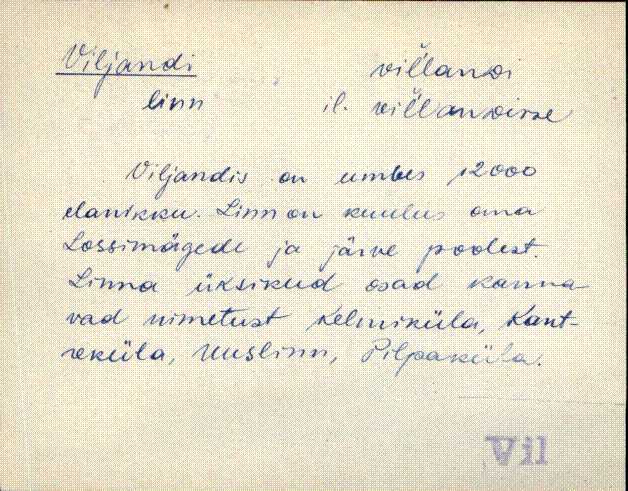 Viljandi villanᴅi
linn il. villanᴅesse
Viljandis on umbes 12000
elanikku. Linn on kuulus oma
Lossimägede ja järve poolest.
Linna üksikud osad kanna-
vad nimetust Kelmiküla, Kant-
reküla, Uuslinn, Pilpaküla.
Vil